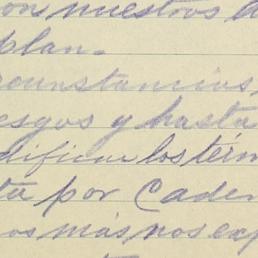 con nuestros
plan.
circunstancias,
esgos y hasta
dificar los térm
ta por Caden
os más nos exp